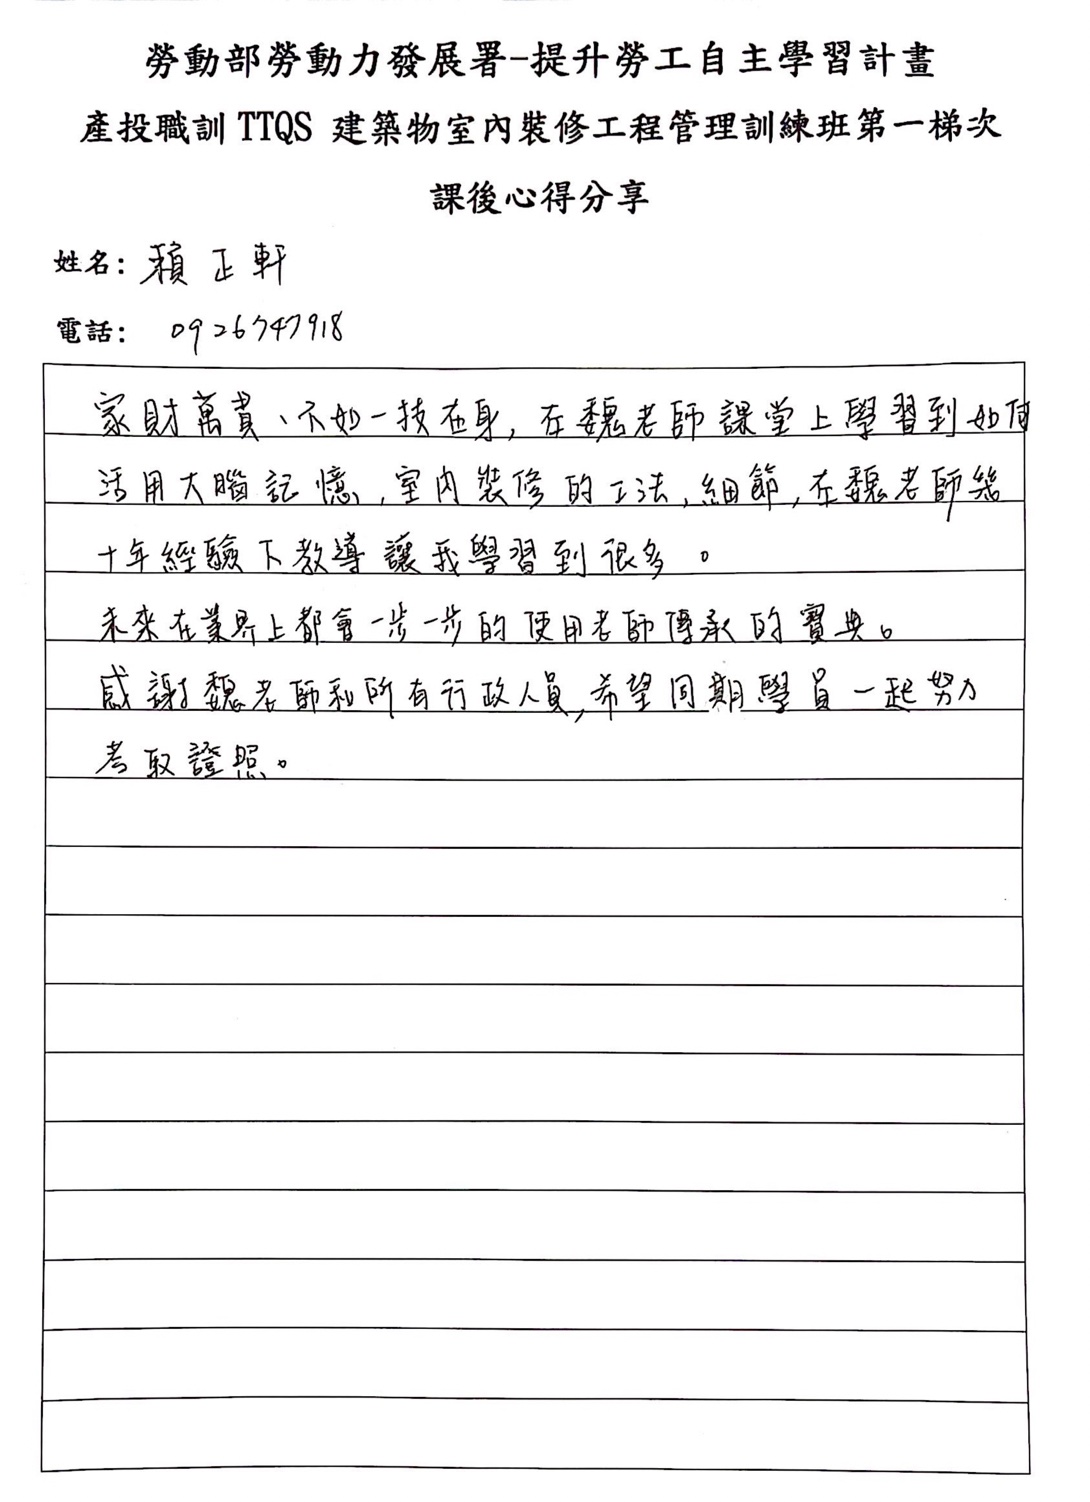 勞動部勞動力發展署-提升勞工自主學習計畫
產投職訓 TTQS 建築物室內裝修工程管理訓練班第一梯次
課後心得分享
姓名：賴正軒
電話： 0926747918
家財萬貫、不如一技在身，在魏老師課堂上學習到如何
活用大腦記憶，室內裝修的工法，細節，在魏老師幾
十年經驗下教導讓我學習到很多。
未來在業界上都會一步一步的使用老師傳承的寶典。
感謝魏老師和所有行政人員，希望同期學員一起努力
考取證照。